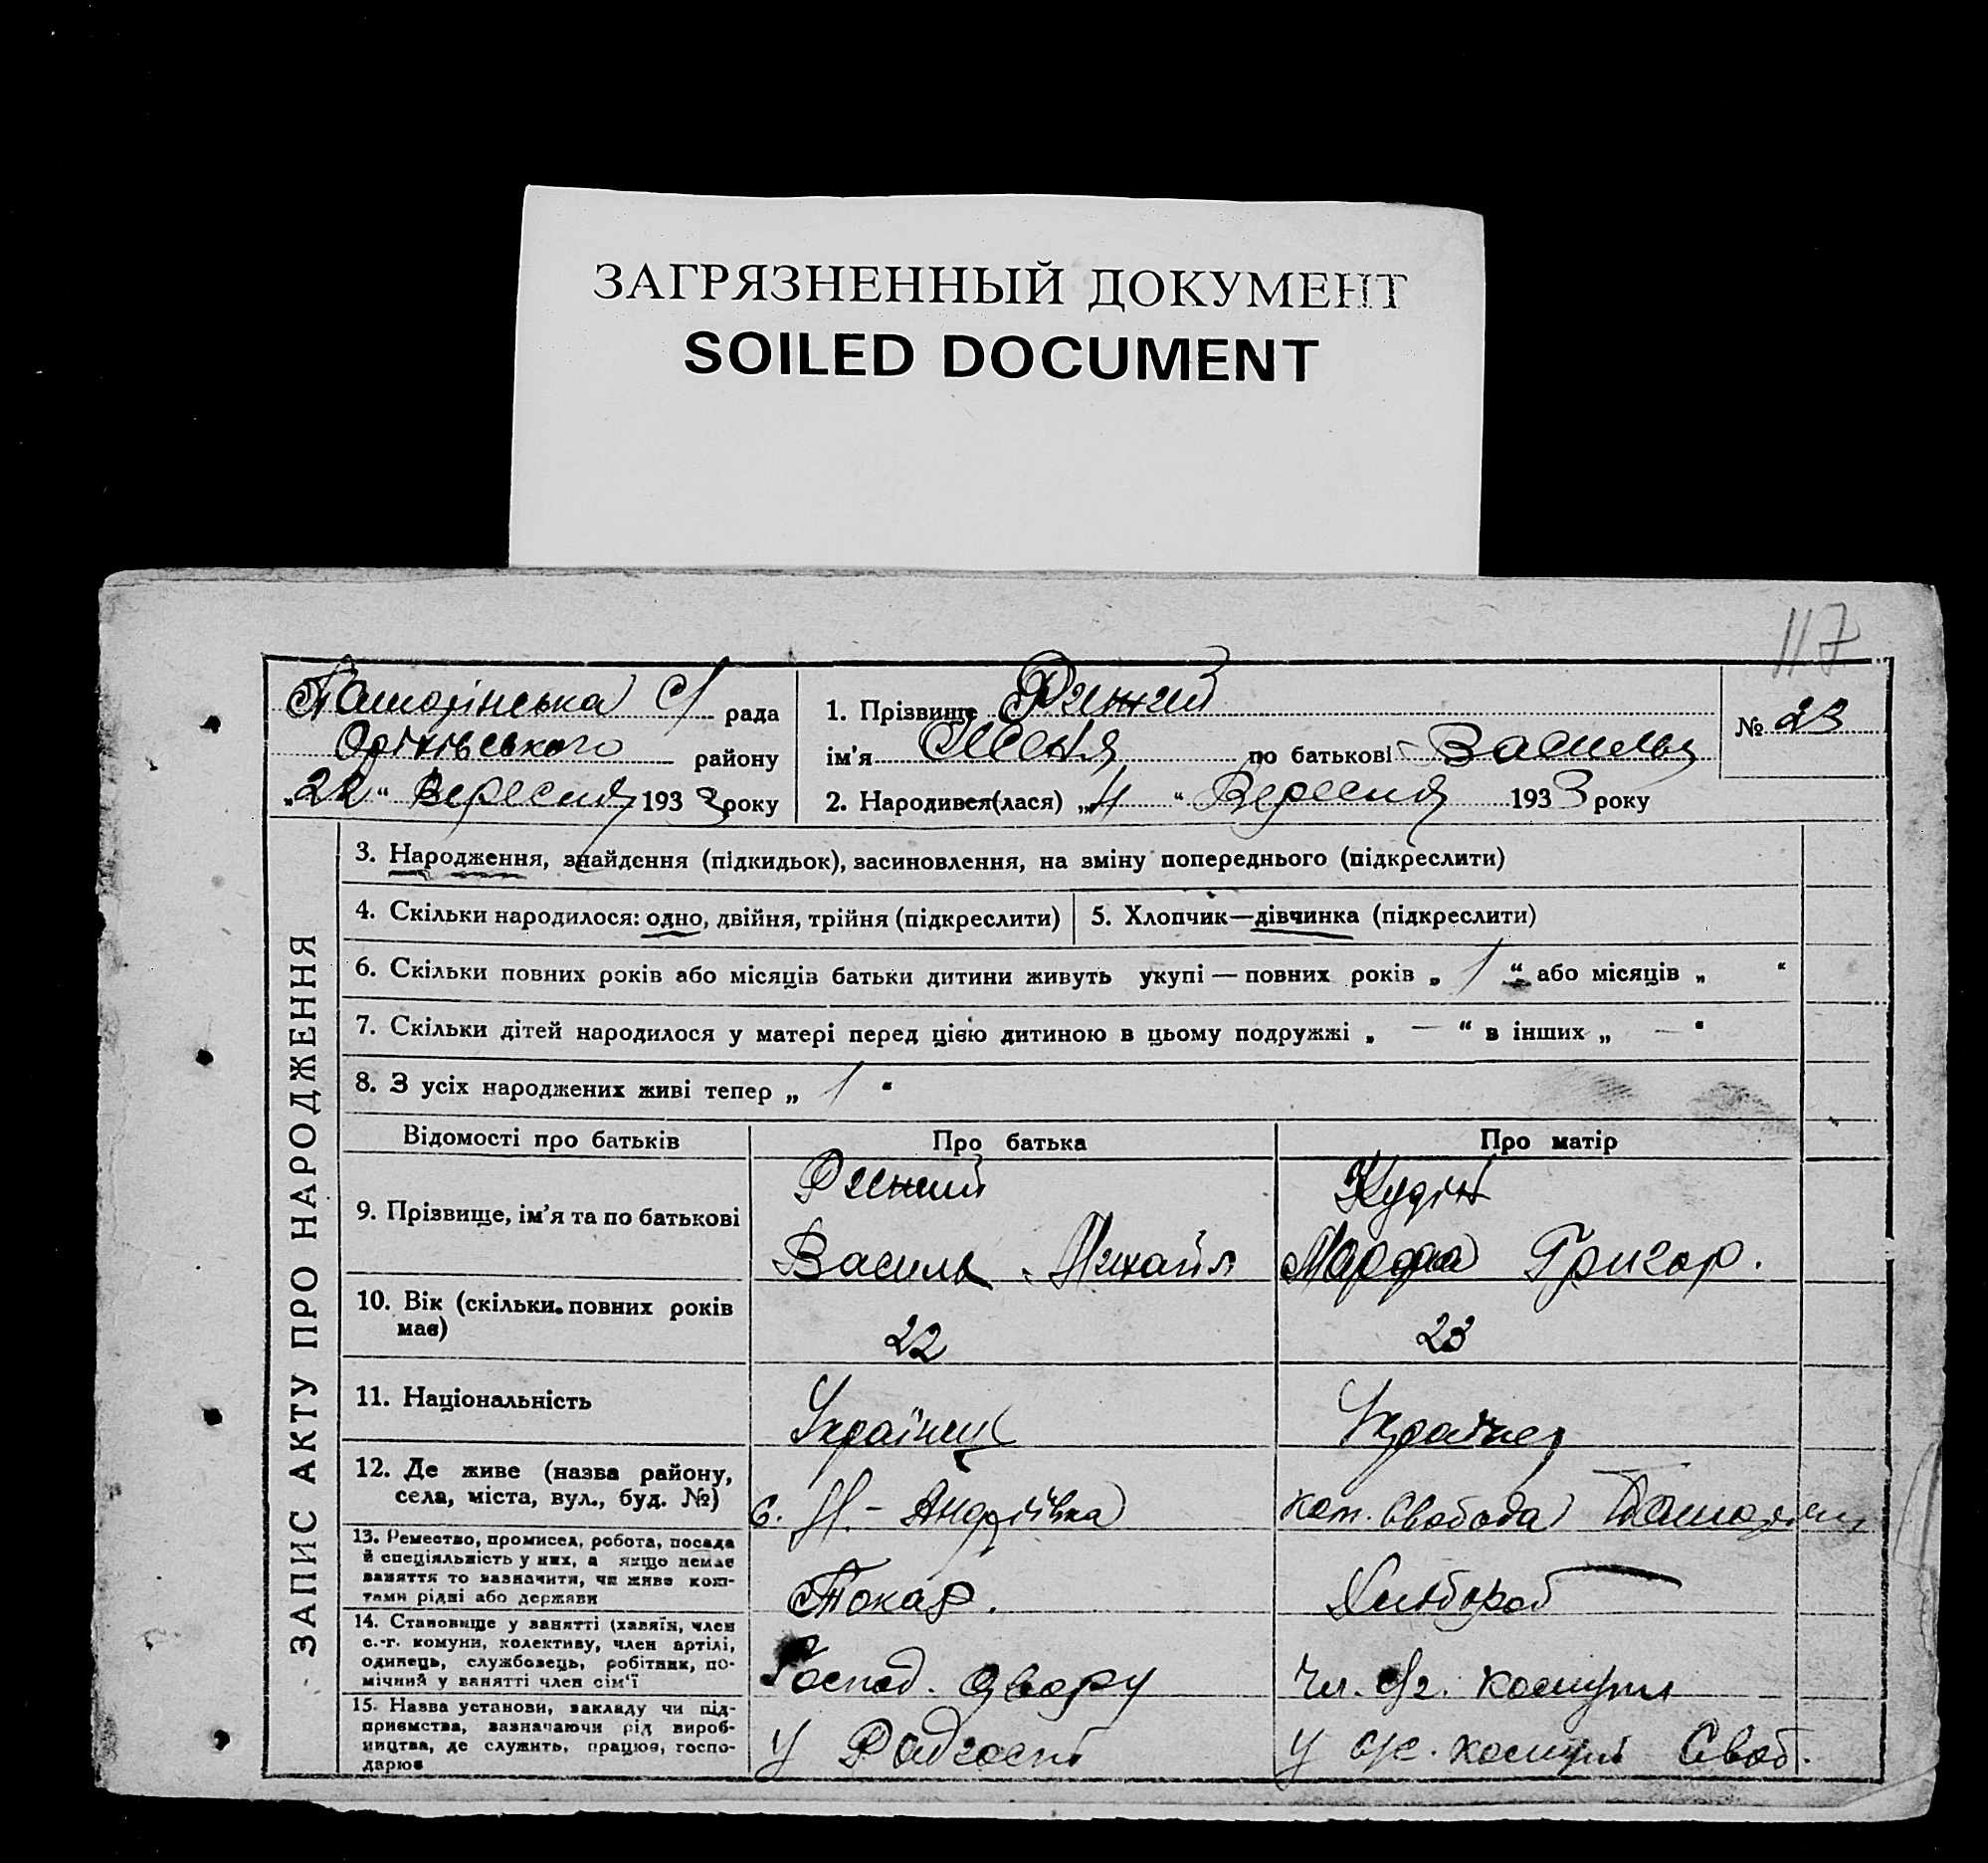 ЗАГРЯЗНЕННЫЙ ДОКУМЕНТ
SOILED DOCUMENT
117
рада
Оріхівського району
„22“ Вересня 1933 року
1. Прізвище Рижий
ім'я Ксеня по батькові Василь
№ 23
2. Народився(лася) „11“ Вересня 1933 року
ЗАПИС АКТУ ПРО НАРОДЖЕННЯ
3. Народження, знайдення (підкидьок), засиновлення, на зміну попереднього (підкреслити)
4. Скільки народилося: одно, двійня, трійня (підкреслити)
5. Хлопчик—дівчинка (підкреслити)
6. Скільки повних років або місяців батьки дитини живуть укупі — повних років „ 1 “ або місяців „ “
7. Скільки дітей народилося у матері перед цією дитиною в цьому подружжі „ — “ в інших „ — “
8. З усіх народжених живі тепер „ 1 “
Відомості про батьків
Про батька
Про матір
9. Прізвище, ім'я та по батькові
Рижий
Василь Михайл
Кудін
Марфа Григор.
10. Вік (скільки повних років
має)
22
23
11. Національність
Українец
Україн
12. Де живе (назва району,
села, міста, вул., буд. №)
с. Н.-Андріївка
ком. Свобода
13. Ремество, промисел, робота, посада
й спеціяльність у них, а якщо немає
заняття то зазначити, чи живе кош-
тами рідні або держави
Токар.
Хлібороб
14. Становище у занятті (хазяїн, член
с.-г. комуни, колективу, член артілі,
одинець, службовець, робітник, по-
мічний у занятті член сім'ї
Господ. двору
Чл. с/г. комуни
15. Назва установи, закладу чи під-
приємства, зазначаючи рід вироб-
ництва, де служить, працює, госпо-
дарює
У Радгоспі
У с/г. комуні Своб.